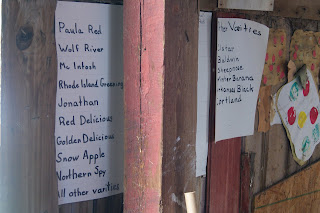 Paula Red
Wolf River
Mc Intosh
Rhode Island Greening
Jonathan
Red Delicious
Golden Delicious
Snow Apple
Northern Spy
All other varities
Varities
Baldwin
Banana
Black